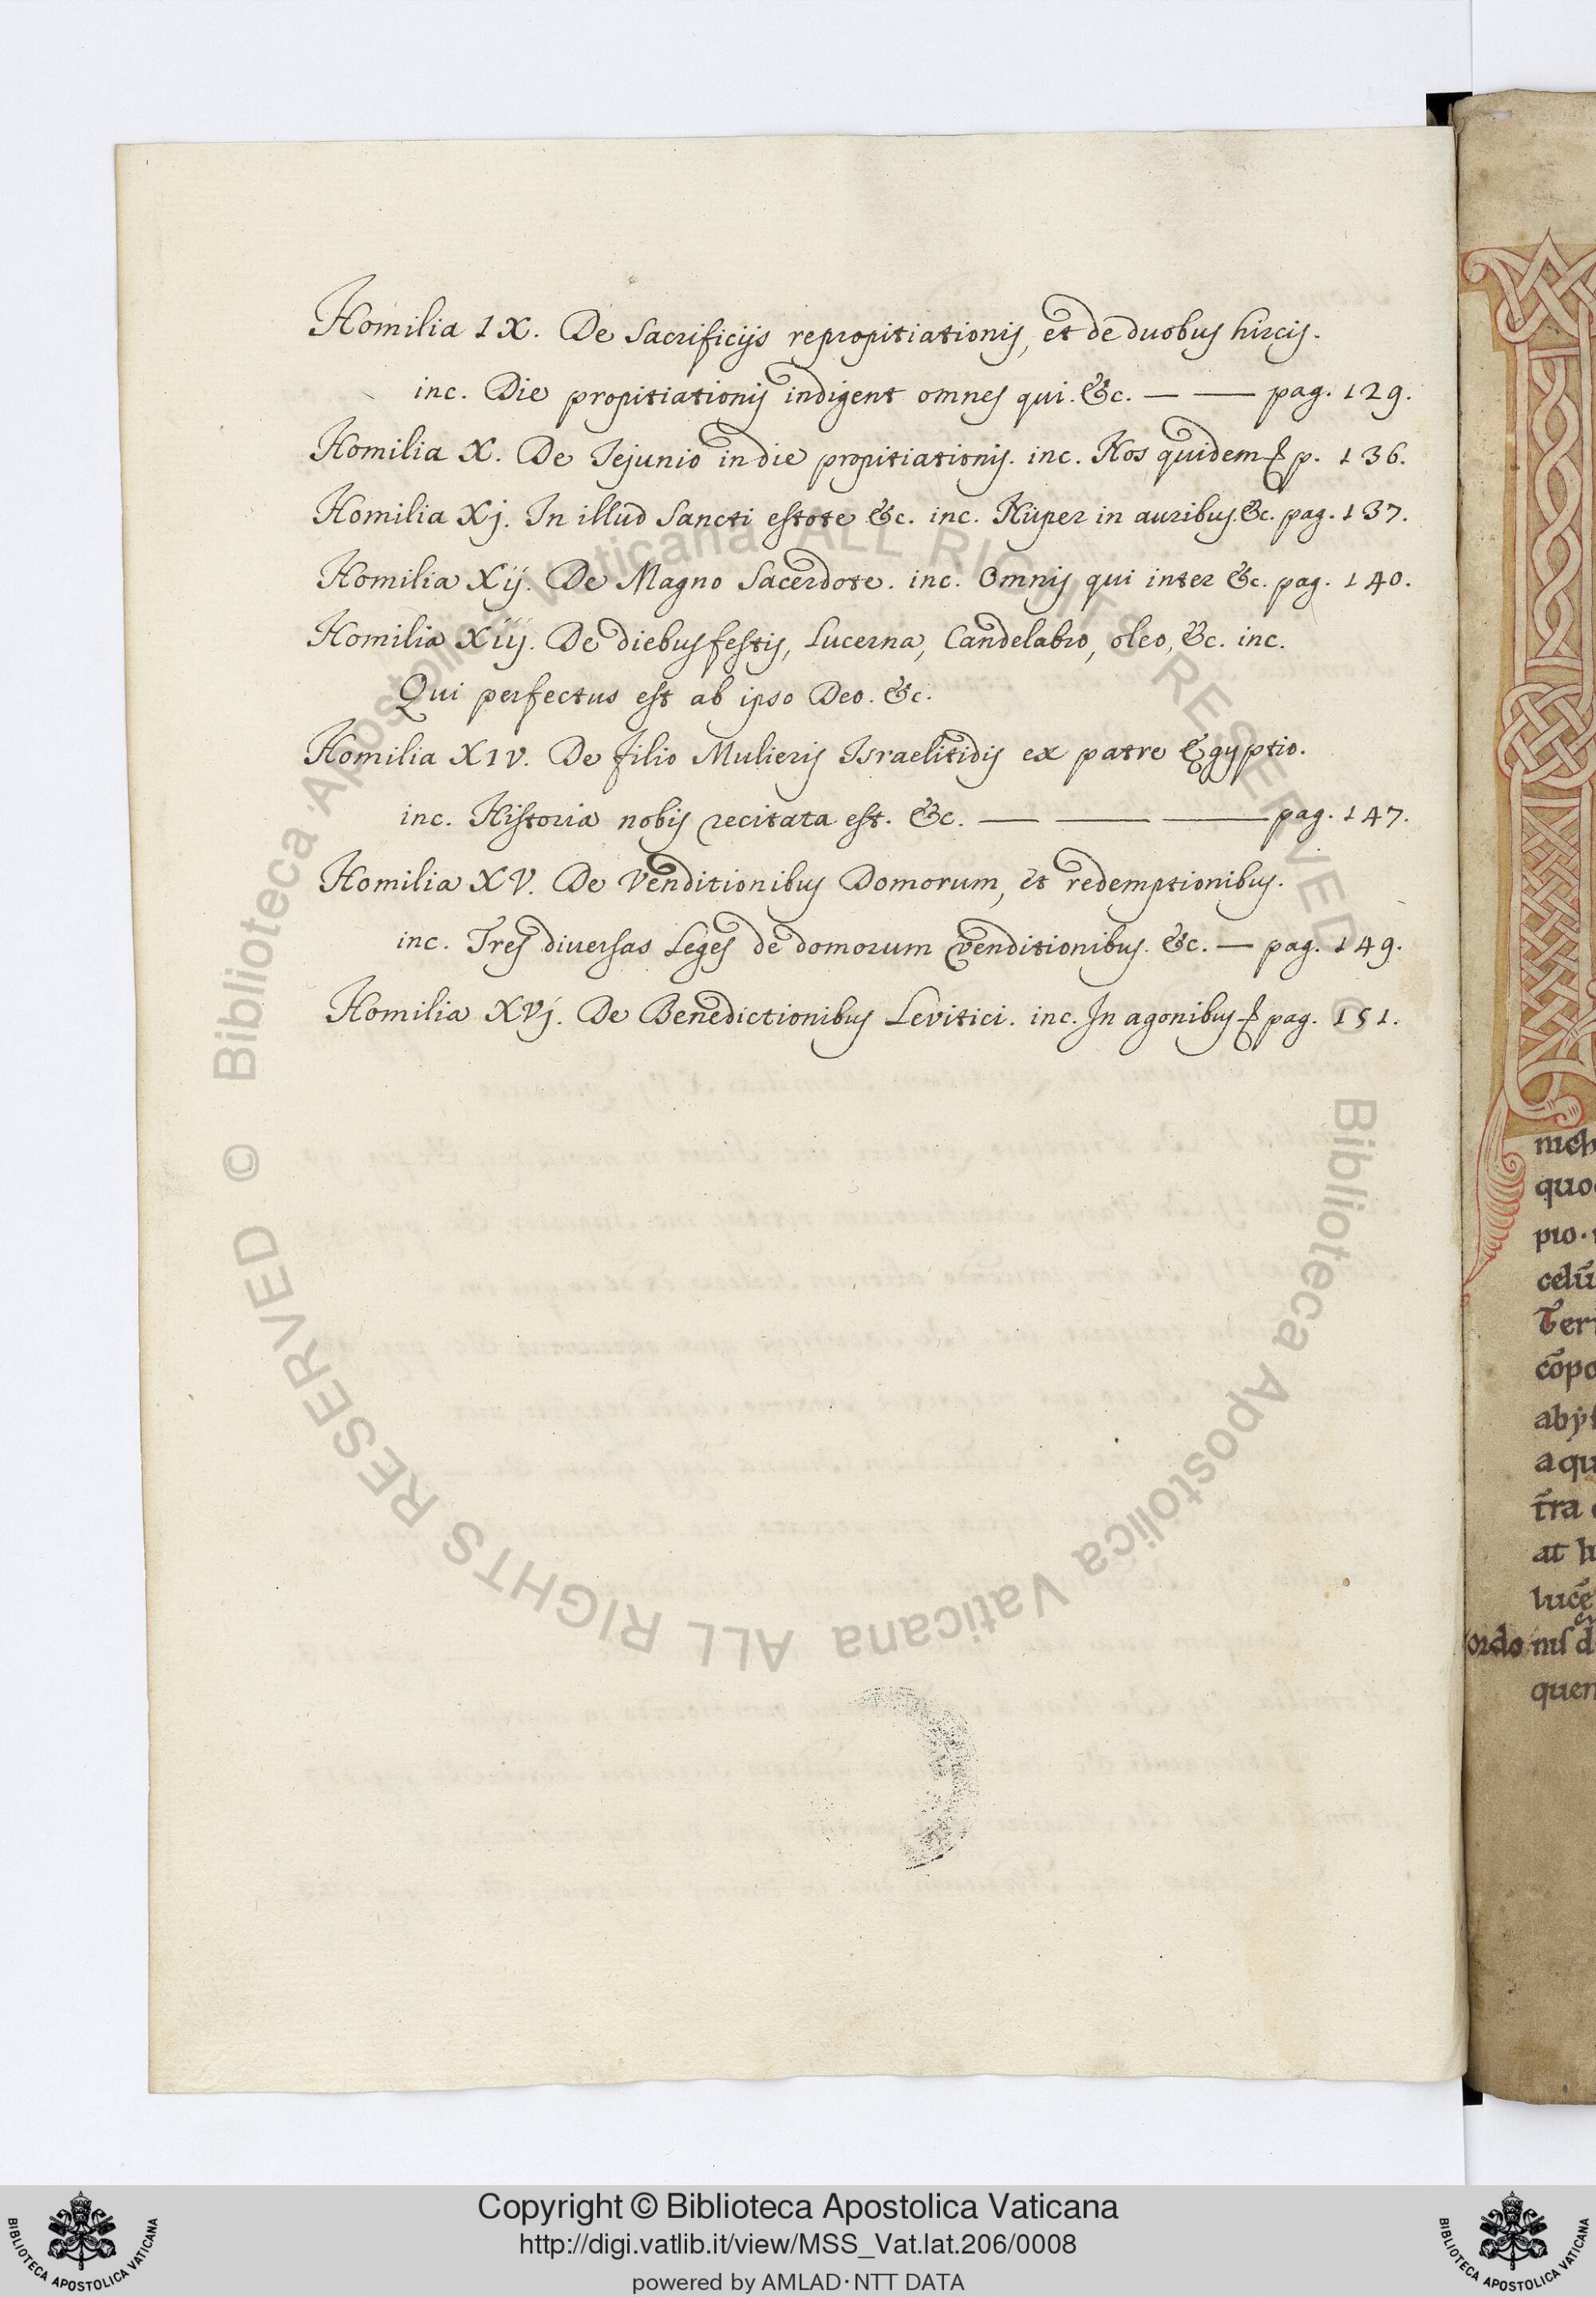 Homilia IX. De Sacrificijs repropitiationis, et de duobus hircis.
inc. Die propitiationis indigent omnes qui. &c. — — pag. 129.
Homilia X. De Jejunio in die propitiationis. inc. Nos quidem p. 136.
Homilia Xj. In illud Sancti estote &c. inc. Nuper in auribus. &c. pag. 137.
Homilia Xij. De Magno Sacerdote. inc. Omnis qui inter &c. pag. 140.
Homilia Xiij. De diebus festis, Lucerna, Candelabro, oleo, &c. inc.
Qui perfectus est ab ipso Deo. &c.
Homilia XIV. De filio Mulieris Israelitidis ex patre Egyptio.
inc. Historia nobis recitata est. &c. — — — pag. 147.
Homilia XV. De Venditionibus Domorum, et redemptionibus.
inc. Tres diversas Leges de domorum venditionibus. &c. — pag. 149.
Homilia XVj. De Benedictionibus Levitici. inc. In agonibus pag. 151.
quo
pio.
celū
Terr
cōpo
aby
aqu
t̄ra
at
lucē
ordo
quen
© Biblioteca Apostolica Vaticana ALL RIGHTS RESERVED
© Biblioteca Apostolica Vaticana ALL RIGHTS RESERVED
Copyright © Biblioteca Apostolica Vaticana
http://digi.vatlib.it/view/MSS_Vat.lat.206/0008
powered by AMLAD·NTT DATA
BIBLIOTECA APOSTOLICA VATICANA
BIBLIOTECA APOSTOLICA VATICANA